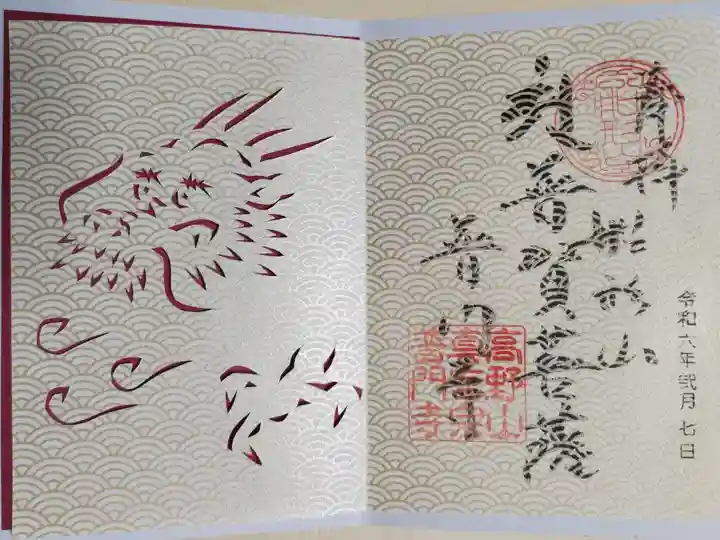 令和六年弐月七日
奉拝
船形山
普賢菩薩
普門寺
高野山
真言宗
普門寺